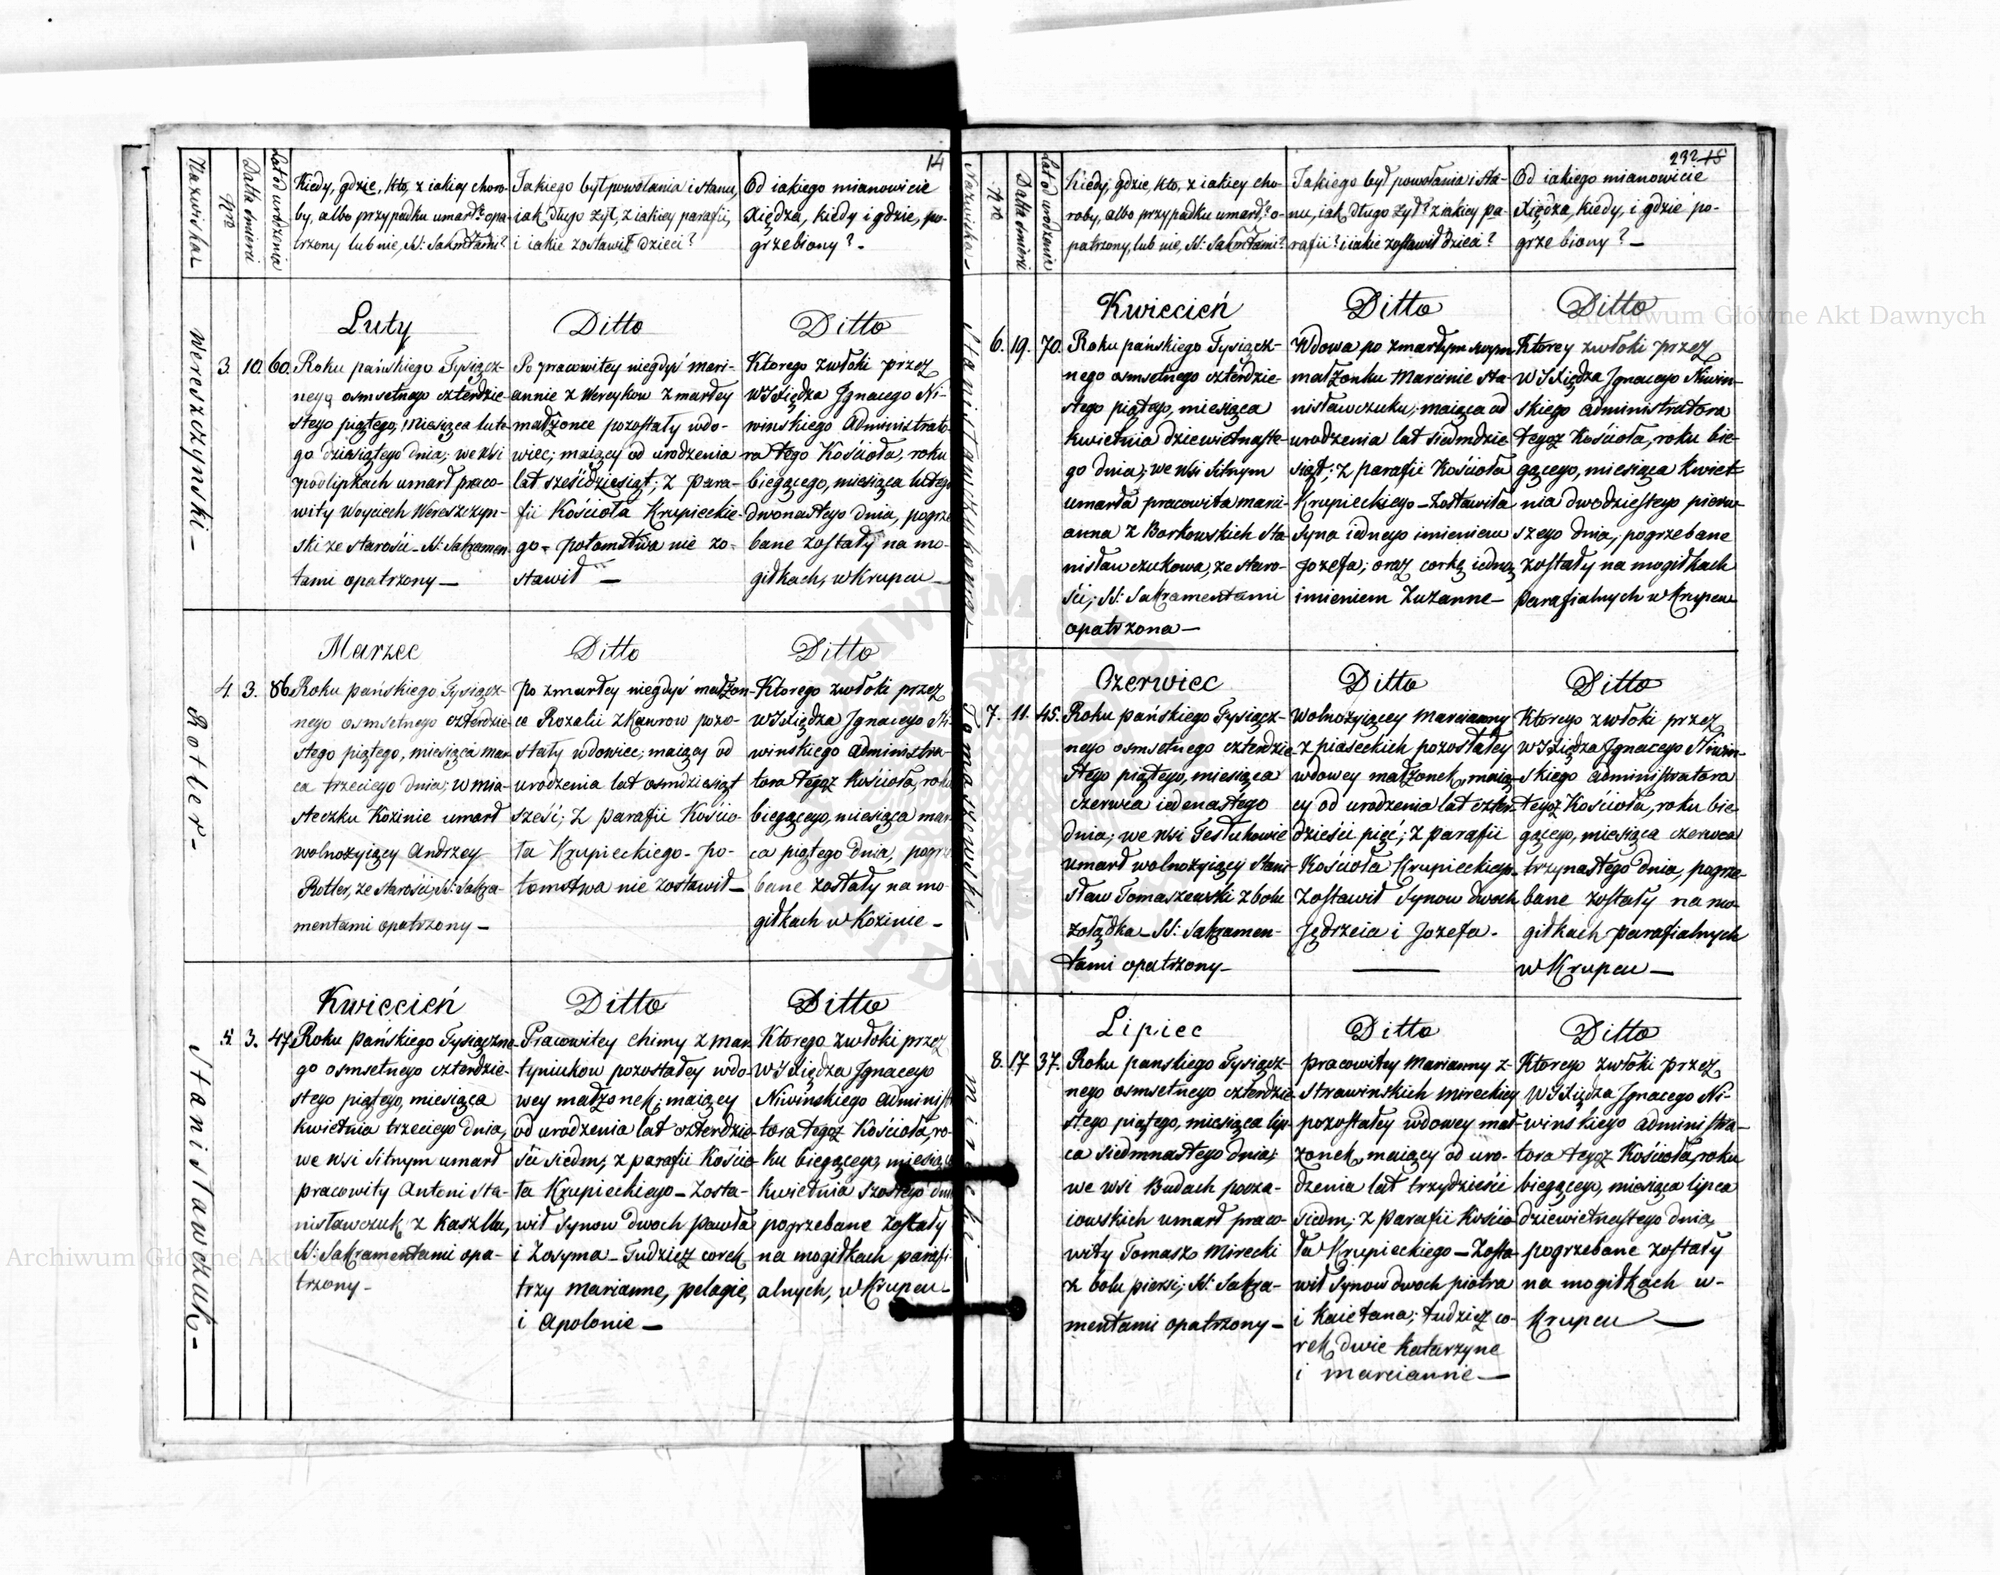 14
Nazwiska
Nro
Datta śmierci
Lat od urodzenia
Kiedy, gdzie, kto, z iakiey choro-
by, albo przypadku umarł? opa-
trzony lub nie, SS: Sakramtami?
Jakiego był powołania i stanu,
iak długo żył, z iakiey parafii,
i iakie zostawił dzieci?
Od iakiego mianowicie
Xiędza, kiedy i gdzie, po-
grzebiony? -
Wereszczynski -
3. 10. 60.
Luty
Roku pańskiego Tysiącz-
nego osmsetnego czterdzie-
stego piątego, Miesiąca lute-
go dziesiątego dnia; we wsi
podlipkach umarł praco-
wity Woyciech Wereszczyn-
ski ze starości - SS: Sakramen-
tami opatrzony -
Ditto
Po pracowitey niegdyś mari-
annie z Wereykow zmarłey
małżonce pozostały wdo-
wiec; maiący od urodzenia
lat sześćdziesiąt; z para-
fii Kościoła Krupieckie-
go - potomstwa nie zo-
stawił -
Ditto
Ktorego zwłoki przez
WJXiędza Jgnacego Ni-
winskiego Administrato-
ra tego Kościoła, roku
biegącego, miesiąca lutego
dwonastego dnia, pogrze
bane zostały na mo-
giłkach, w Krupcu -
Rotler -
4. 3. 86.
Marzec
Roku pańskiego Tysiącz-
nego osmsetnego czterdzie-
stego piątego, miesiąca mar
ca trzeciego dnia; w mia-
steczku Kozinie umarł
wolnożyiący Andrzey
Rotler, ze starości, SS: Sakra-
mentami opatrzony -
Ditto
po zmarłey niegdyś małżon-
ce Rozalii z Kaurow pozo-
stały wdowiec; maiący od
urodzenia lat osmdziesiąt
sześć; z parafii Kościo-
ła Krupieckiego - po-
tomstwa nie zostawił -
Ditto
Ktorego zwłoki przez
WJXiędza Jgnacego Ni-
winskiego administra-
tora tegoż Kościoła, roku
biegącego, miesiąca mar
ca piątego dnia, pogrz
bane zostały na mo-
giłkach w Kozinie -
Stanisławczuk -
5. 3. 47.
Kwiecień
Roku pańskiego Tysiączne-
go osmsetnego czterdzie-
stego piątego, miesiąca
kwietnia trzeciego dnia,
we wsi Sitnym umarł
pracowity Antoni sta-
nisławczuk z Kaszlu,
SS: Sakramentami opa-
trzony -
Ditto
Pracowitey chimy z mar
tyniukow pozostałey wdo-
wey małżonek; maiący
od urodzenia lat czterdzie-
ści siedm; z parafii Kościo-
ła Krupieckiego - Zosta-
wił Synow dwoch pawła
i Zosyma - Tudzież corek
trzy mariannę, pelagię,
i Apolonię -
Ditto
Ktorego zwłoki przez
WJXiędza Jgnacego
Niwinskiego administ
tora tegoż Kościoła, ro-
ku biegącego, miesiąca
kwietnia szostego dnia
pogrzebane zostały
na mogiłkach parafi-
alnych, w Krupcu -
232 15
Nazwiska -
Nro
Datta śmierci
Lat od urodzenia
Kiedy, gdzie, kto, z iakiey cho-
roby, albo przypadku umarł? o-
patrzony, lub nie, SS: Sakramtami?
Jakiego był powołania i sta-
nu, iak długo żył? z iakiey pa-
rafii? i iakie zostawił dzieci?
Od iakiego mianowicie
Xiędza, kiedy, i gdzie po-
grzebiony? -
Stanisławczukowa -
6. 19. 70.
Kwiecień
Roku pańskiego Tysiącz-
nego osmsetnego czterdzie-
stego piątego, miesiąca
kwietnia dziewietnaste-
go dnia; we wsi Sitnym
umarła pracowita mari-
anna z Borkowskich sta-
nisławczukowa, ze staro-
ści; SS: Sakramentami
opatrzona -
Ditto
Wdowa po zmarłym swym
małżonku Marcinie sta-
nisławczuku; maiąca od
urodzenia lat siedmdzie-
siąt; z parafii Kościoła
Krupieckiego - Zostawiła
syna iednego imieniem
Jozefa; oraz corkę iedną
imieniem Zuzannę -
Ditto
Ktorey zwłoki przez
WJXiędza Jgnacego Niwin-
skiego administratora
tegoż Kościoła, roku bie-
gącego, miesiąca kwiet-
nia dwodziestego pierw-
szego dnia, pogrzebane
zostały na mogiłkach
parafialnych w Krupcu
Tomaszewski -
7. 11. 45.
Czerwiec
Roku pańskiego Tysiącz-
nego osmsetnego czterdzie-
stego piątego, miesiąca
czerwca iedenastego
dnia; we wsi Tesłuhowie
umarł wolnożyiący Stani-
sław Tomaszewski z bolu
żołądka - SS: Sakramen-
tami opatrzony -
Ditto
Wolnożyiącey Marcianny
z piaseckich pozostałey
wdowey małżonek, maią-
cy od urodzenia lat czter-
dzieści pięć; z parafii
Kościoła Krupieckiego -
Zostawił synow dwoch
Jędrzeia i Jozefa -
Ditto
Ktorego zwłoki przez
WJXiędza Jgnacego Niwin-
skiego administratora
tegoż Kościoła, roku bie-
gącego, miesiąca czerwca
trzynastego dnia, pogrze-
bane zostały na mo-
giłkach parafialnych
w Krupcu -
Mirecki -
8. 17 37.
Lipiec
Roku panskiego Tysiącz-
nego osmsetnego czterdzie-
stego piątego, miesiąca lip-
ca siedmnastego dnia;
we wsi Budach pocza-
iowskich umarł praco-
wity Tomasz Mirecki
z bolu piersi; SS: Sakra-
mentami opatrzony -
Ditto
pracowitey Marianny z-
Strawinskich mireckiey
pozostałey wdowey mał-
żonek, maiący od uro-
dzenia lat trzydzieści
siedm; z parafii Kościo-
ła Krupieckiego - Zosta-
wił synow dwoch piotra
i Kaietana; tudzież co-
rek dwie Katarzynę
i marciannę -
Ditto
Ktorego zwłoki przez
WJXiędza Jgnacego Ni-
winskiego administra-
tora tegoż Kościoła, roku
biegącego, miesiąca lipca
dziewietnastego dnia,
pogrzebane zostały
na mogiłkach w-
Krupcu -
Archiwum Główne Akt Dawnych
Archiwum Główne Akt Dawnych